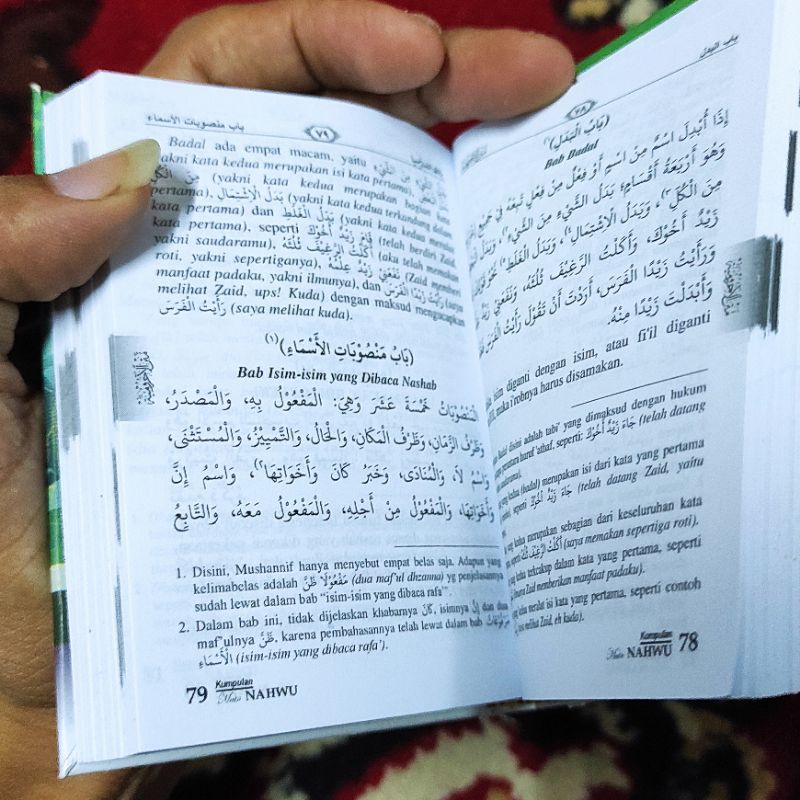 باب البدل
٧٨
(بَابُ الْبَدَلِ)
Bab Badal
إِذَا أُبْدِلَ اسْمٌ مِنْ اسْمٍ أَوْ فِعْلٌ مِنْ فِعْلٍ تَبِعَهُ فِي جَمِيعِ
وَهُوَ أَرْبَعَةُ أَقْسَامٍ: بَدَلُ الشَّيْءِ مِنَ الشَّيْءِ
مِنَ الْكُلِّ، وَبَدَلُ الْاِشْتِمَالِ، وَبَدَلُ الْغَلَطِ
زَيْدٌ أَخُوْكَ، وَأَكَلْتُ الرَّغِيْفَ ثُلُثَهُ، وَنَفَعَنِيْ
وَرَأَيْتُ زَيْدًا الْفَرَسَ، أَرَدْتَ أَنْ تَقُوْلَ رَأَيْتُ الْفَرَسَ
وَأَبْدَلْتَ زَيْدًا مِنْهُ.
isim diganti dengan isim, atau fi'il diganti
maka i'robnya harus disamakan.
disini adalah tabi' yang dimaksud dengan hukum
huruf 'athaf, seperti: جَاءَ زَيْدٌ أَخُوْكَ (telah datang
kedua (badal) merupakan isi dari kata yang pertama
seperti جَاءَ زَيْدٌ أَخُوْكَ (telah datang Zaid, yaitu
kedua merupakan sebagian dari keseluruhan kata
أَكَلْتُ الرَّغِيْفَ ثُلُثَهُ (saya makan sepertiga roti).
kedua tercakup dalam kata yang pertama, seperti
Zaid memberikan manfaat padaku).
kata yang pertama, seperti contoh
melihat Zaid, eh kuda).
Kumpulan
NAHWU 78
باب منصوبات الأسماء
٧٩
Badal ada empat macam, yaitu
yakni kata kedua merupakan isi kata pertama),
(yakni kata kedua merupakan bagian
pertama), بَدَلُ الْاِشْتِمَالِ (yakni kata kedua terkandung dalam
kata pertama) dan بَدَلُ الْغَلَطِ (yakni kata kedua
kata pertama), seperti قَامَ زَيْدٌ أَخُوْكَ (telah berdiri Zaid
yakni saudaramu), أَكَلْتُ الرَّغِيْفَ ثُلُثَهُ (aku telah memakan
roti, yakni sepertiganya), نَفَعَنِيْ زَيْدٌ عِلْمُهُ (Zaid memberi
manfaat padaku, yakni ilmunya), dan رَأَيْتُ زَيْدًا الْفَرَسَ (saya
melihat Zaid, ups! Kuda) dengan maksud mengucapkan
رَأَيْتُ الْفَرَسَ (saya melihat kuda).
(بَابُ مَنْصُوْبَاتِ الْأَسْمَاءِ)(١)
Bab Isim-isim yang Dibaca Nashab
الْمَنْصُوْبَاتُ خَمْسَةَ عَشَرَ وَهِيَ: الْمَفْعُوْلُ بِهِ، وَالْمَصْدَرُ،
وَظَرْفُ الزَّمَانِ، وَظَرْفُ الْمَكَانِ، وَالْحَالُ، وَالتَّمْيِيْزُ، وَالْمُسْتَثْنَى،
وَاسْمُ لَا، وَالْمُنَادَى، وَخَبَرُ كَانَ وَأَخَوَاتِهَا(٢)، وَاسْمُ إِنَّ
وَأَخَوَاتِهَا، وَالْمَفْعُوْلُ مِنْ أَجْلِهِ، وَالْمَفْعُوْلُ مَعَهُ، وَالتَّابِعُ
1. Disini, Mushannif hanya menyebut empat belas saja. Adapun yang
kelimabelas adalah مَفْعُوْلَا ظَنَّ (dua maf'ul dhzanna) yg penjelasannya
sudah lewat dalam bab “isim-isim yang dibaca rafa'”.
2. Dalam bab ini, tidak dijelaskan khabarnya كَانَ, isimnya إِنَّ dan dua
maf'ulnya ظَنَّ, karena pembahasannya telah lewat dalam bab
الْأَسْمَاءِ (isim-isim yang dibaca rafa').
79 Kumpulan
NAHWU